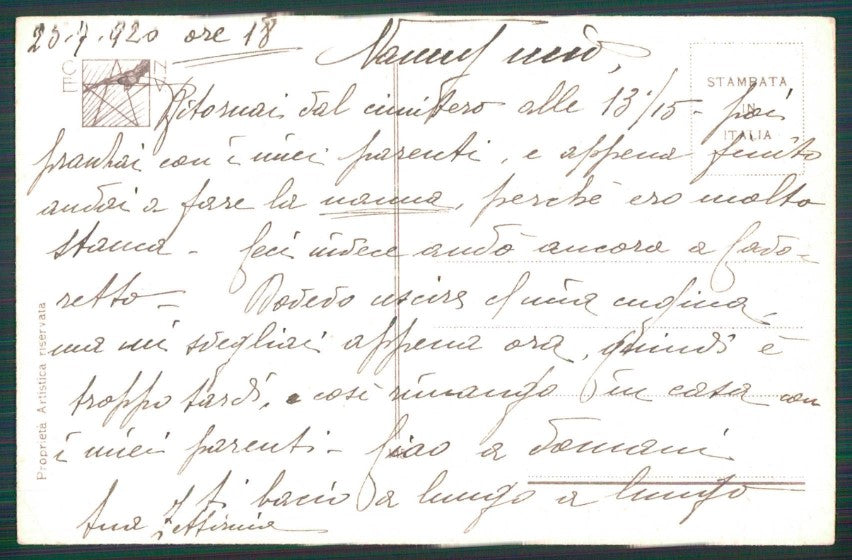 25-7-920 ore 18
Nanny mio,
STAMPATA
IN
ITALIA
Ritornai dal cimitero alle 13.15 - poi
pranzai con i miei parenti, e appena finito
andai a fare la nanna, perchè ero molto
stanca - Ceci invece andò ancora a Cado-
retto - Dovevo uscire con mia cugina,
ma mi svegliai appena ora, quindi è
troppo tardi, e così rimango in casa con
i miei parenti - Ciao a domani
ti bacio a lungo a lungo
tua
Proprietà Artistica riservata